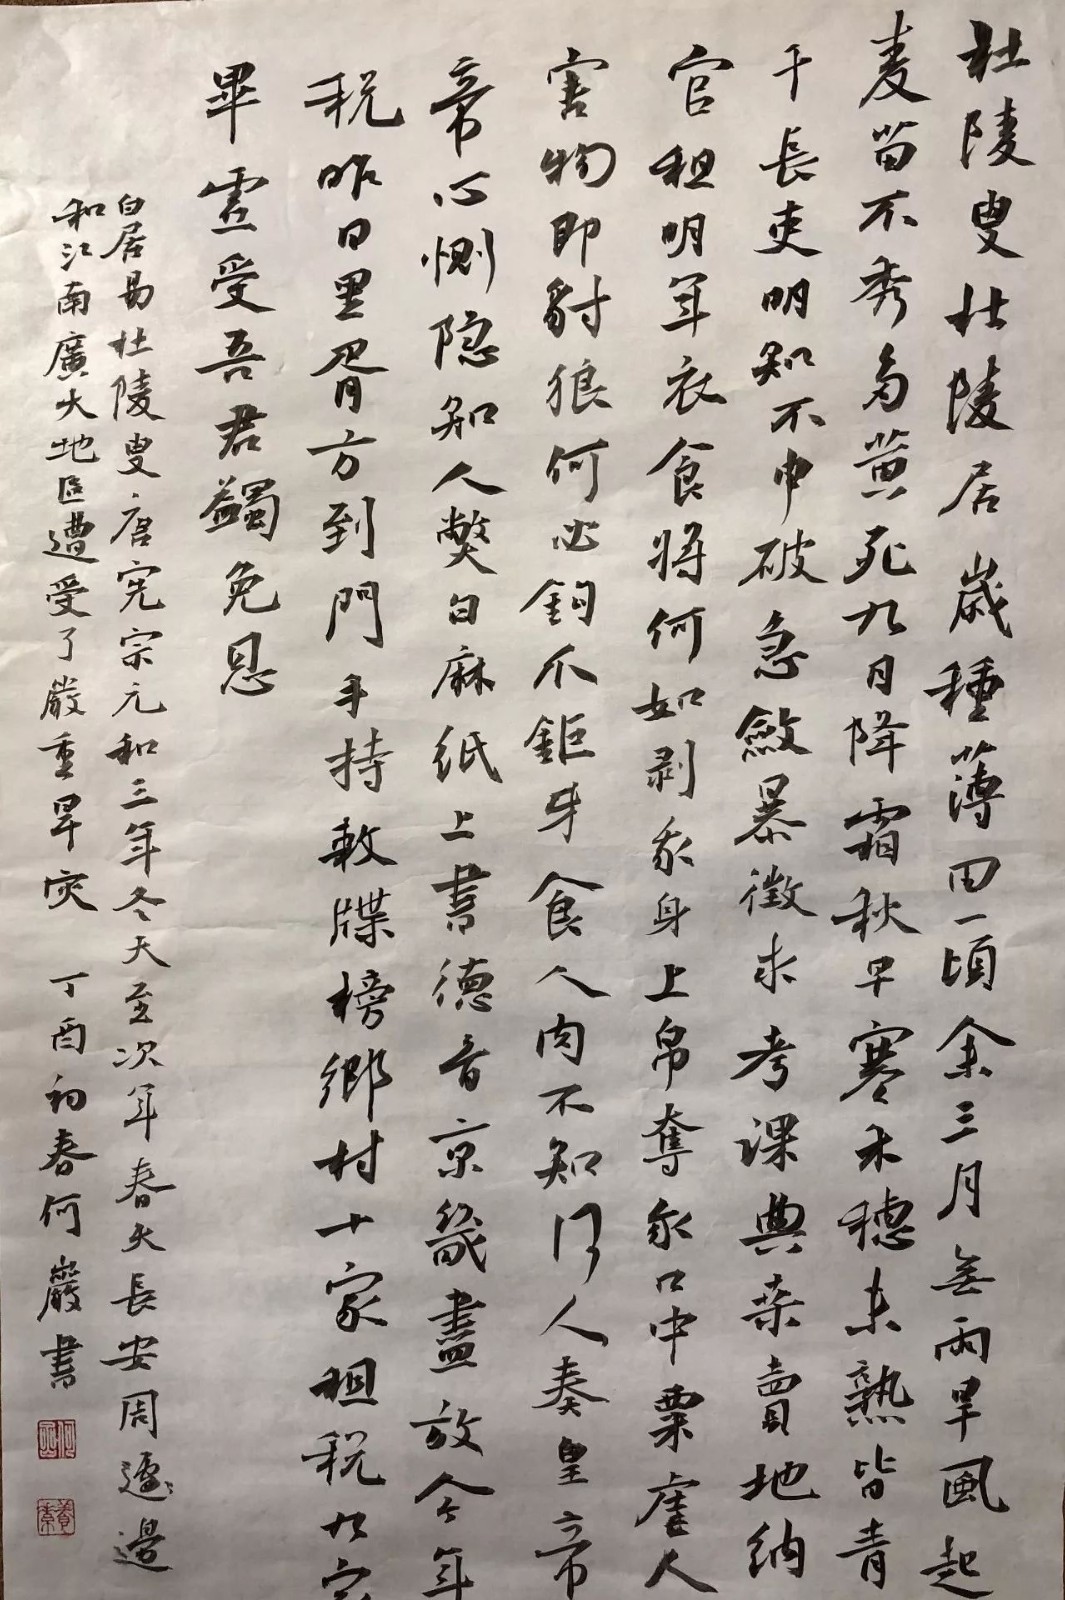 杜陵叟杜陵居歲種薄田一頃余三月無雨旱風起
麦苗不秀多黄死九月降霜秋早寒禾穗未熟皆青
干長吏明知不申破急斂暴徵求考課典桑賣地納
官租明年衣食將何如剥我身上帛奪我口中粟虐人
害物即豺狼何必鈎爪鉅牙食人肉不知何人奏皇帝
帝心惻隐知人弊白麻紙上書德音京畿盡放今年
税昨日里胥方到門手持敕牒榜鄉村十家租税九家
畢虚受吾君蠲免恩
白居易杜陵叟唐宪宗元和三年冬天至次年春天長安周邊
和江南廣大地區遭受了嚴重旱灾 丁酉初春何巖書